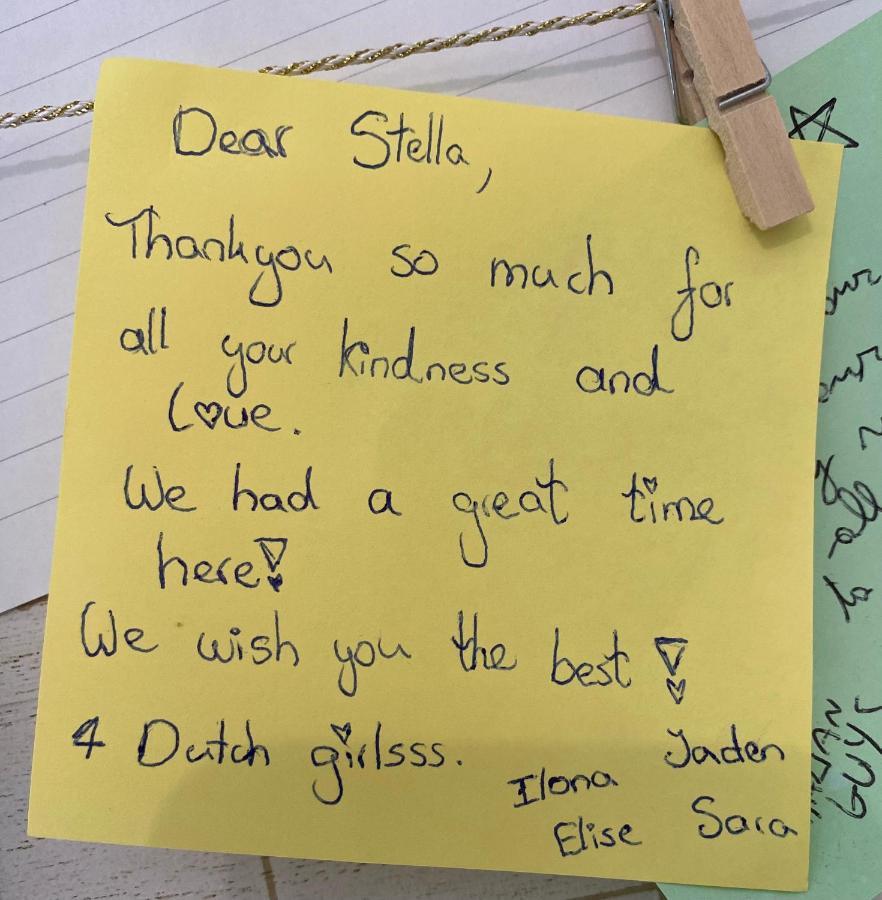 Dear Stella,
Thankyou so much for
all your kindness and
Love.
We had a great time
here!
We wish you the best!
4 Dutch girlsss.
Jaden
Ilona
Sara
Elise
our
our
all
to